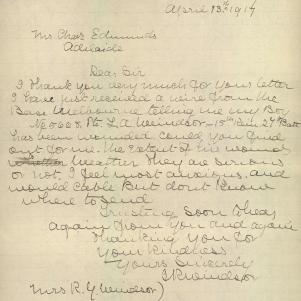 April 13th 1917
Mr Chas Edmunds
Adelaide
Dear Sir
I Thank you very much for your letter
I have just received a wire from the
Base Melbourne telling me my Boy
No 6608 Pte L.A Windsor - 15th Bttn 27th Batt
has been wounded could you find
out for me. the Extent of his wounds
Weather They are serious
or not, I feel most anxious, and
would cable But dont Know
where to send
Trusting Soon to hear
again from you and again
Thanking you for
your Kindness
Yours Sincerely
Windsor
Mrs R. G Windsor)